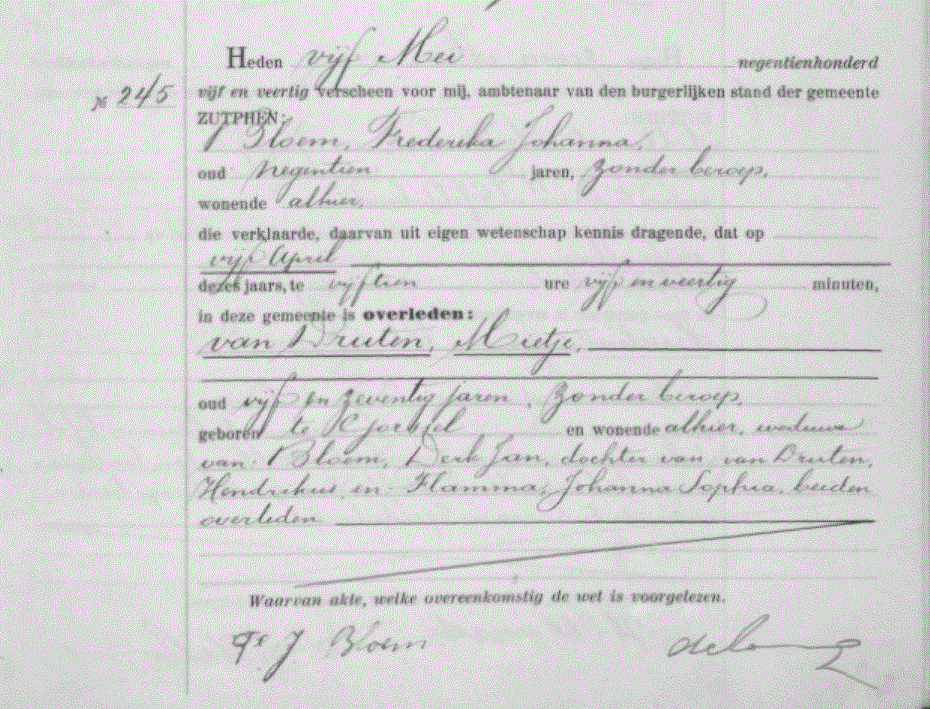 Heden vijf Mei negentienhonderd
№ 245
vijf en veertig verscheen voor mij, ambtenaar van den burgerlijken stand der gemeente
ZUTPHEN:
Bloem, Frederika Johanna,
oud negentien jaren, zonder beroep,
wonende alhier,
die verklaarde, daarvan uit eigen wetenschap kennis dragende, dat op
vijf April
dezes jaars, te vijftien ure vijf en veertig minuten,
in deze gemeente is overleden:
van Druten, Mietje,
oud vijf en zeventig jaren, zonder beroep,
geboren te Gorssel en wonende alhier, weduwe
van Bloem, Derk Jan, dochter van van Druten,
Hendrikus en Flamma, Johanna Sophia, beiden
overleden
Waarvan akte, welke overeenkomstig de wet is voorgelezen.
J Bloem